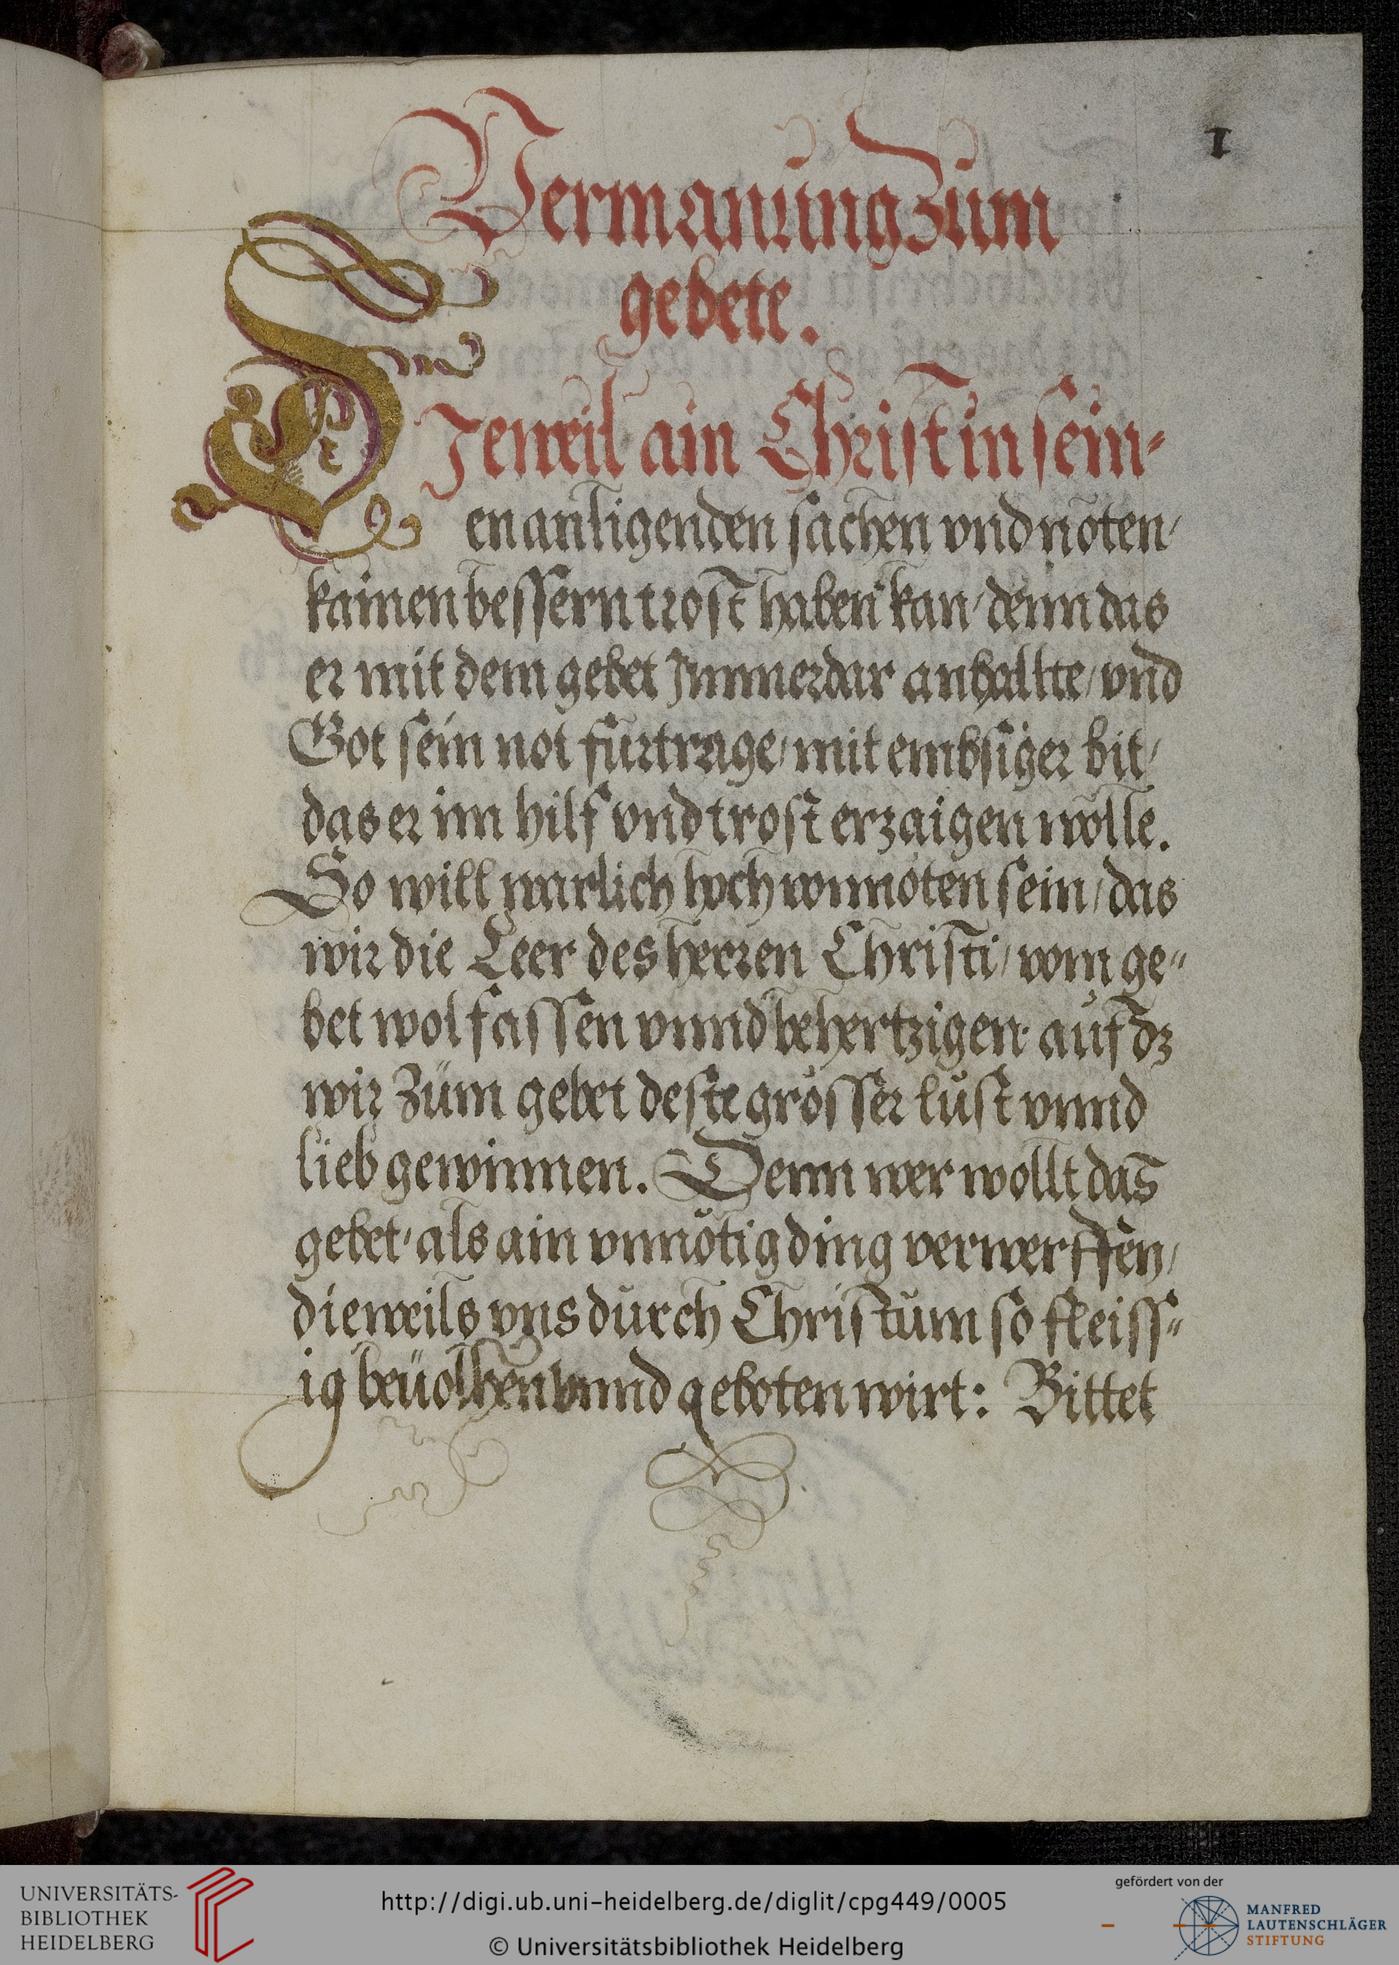 1
Vermanung zum
gebete.
DJeweil ain Christ in sein-
en anligenden sachen vnd nöten/
kainen bessern trost haben kan/ denn das
er mit dem gebet Jmmerdar anhallte/ vnd
Got sein not fürtrage/ mit embsiger bit/
das er im hilf vnd trost erzaigen wölle.
So will warlich hoch vonnöten sein/ das
wir die Leer des herren Christi/ vom ge-
bet wol fassen vnnd behertzigen/ auf dz
wir zum gebet deste grösser lust vnnd
lieb gewinnen. Denn wer wollt das
gebet/ als ain vnnötig ding verwerffen/
dieweils vns durch Christum so fleiss-
ig beuolhen vnnd geboten wirt: Bittet
UNIVERSITÄTS-
BIBLIOTHEK
HEIDELBERG
http://digi.ub.uni-heidelberg.de/diglit/cpg449/0005
© Universitätsbibliothek Heidelberg
gefördert von der
MANFRED
LAUTENSCHLÄGER
STIFTUNG